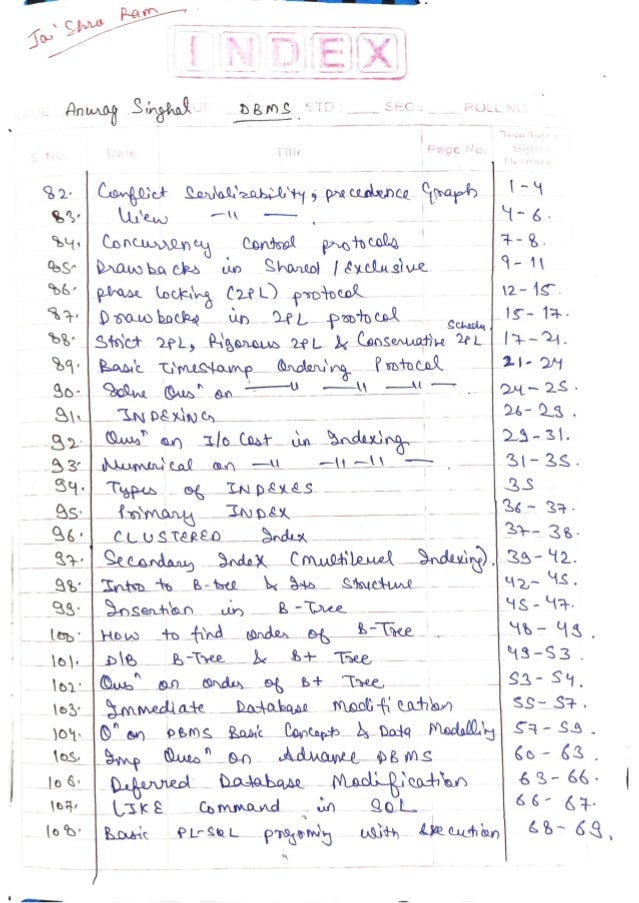 Jai Shree Ram
INDEX
NAME: Anurag Singhal DBMS STD.: SEC.: ROLL NO
S. No. Date Title Page No. Teacher's Sign / Remarks
82. Conflict Serializability, precedence Graph 1-4
83. View -11- 4-6.
84. Concurrency Control protocols 7-8.
85. Drawbacks in Shared / Exclusive 9-11
86. phase locking (2PL) protocol 12-15.
87. Drawbacks in 2PL protocol 15-17.
88. Strict 2PL, Rigorous 2PL & Conservative 2PL Schedu. 17-21.
89. Basic Timestamp Ordering Protocol 21-24
90. Solve Quesⁿ on -11- -11- -11- 24-25.
91. INDEXING 26-29.
92. Quesⁿ on I/O Cost in Indexing 29-31.
93. Numerical on -11- -11-11- 31-35.
94. Types of INDEXES 35
95. Primary INDEX 36-37.
96. CLUSTERED Index 37-38.
97. Secondary Index (multilevel Indexing). 39-42.
98. Intro to B-tree & Its Structure 42-45.
99. Insertion in B-Tree 45-47.
100. How to find order of B-Tree 48-49.
101. D/B B-Tree & B+ Tree 49-53.
102. Quesⁿ on order of B+ Tree 53-54.
103. Immediate Database modification 55-57.
104. Qⁿ on DBMS Basic Concepts & Data Modelling 57-59.
105. Imp Quesⁿ on Advance DBMS 60-63.
106. Deferred Database Modification 63-66.
107. LIKE Command in SQL 66-67.
108. Basic PL-SQL progrming with execution 68-69.